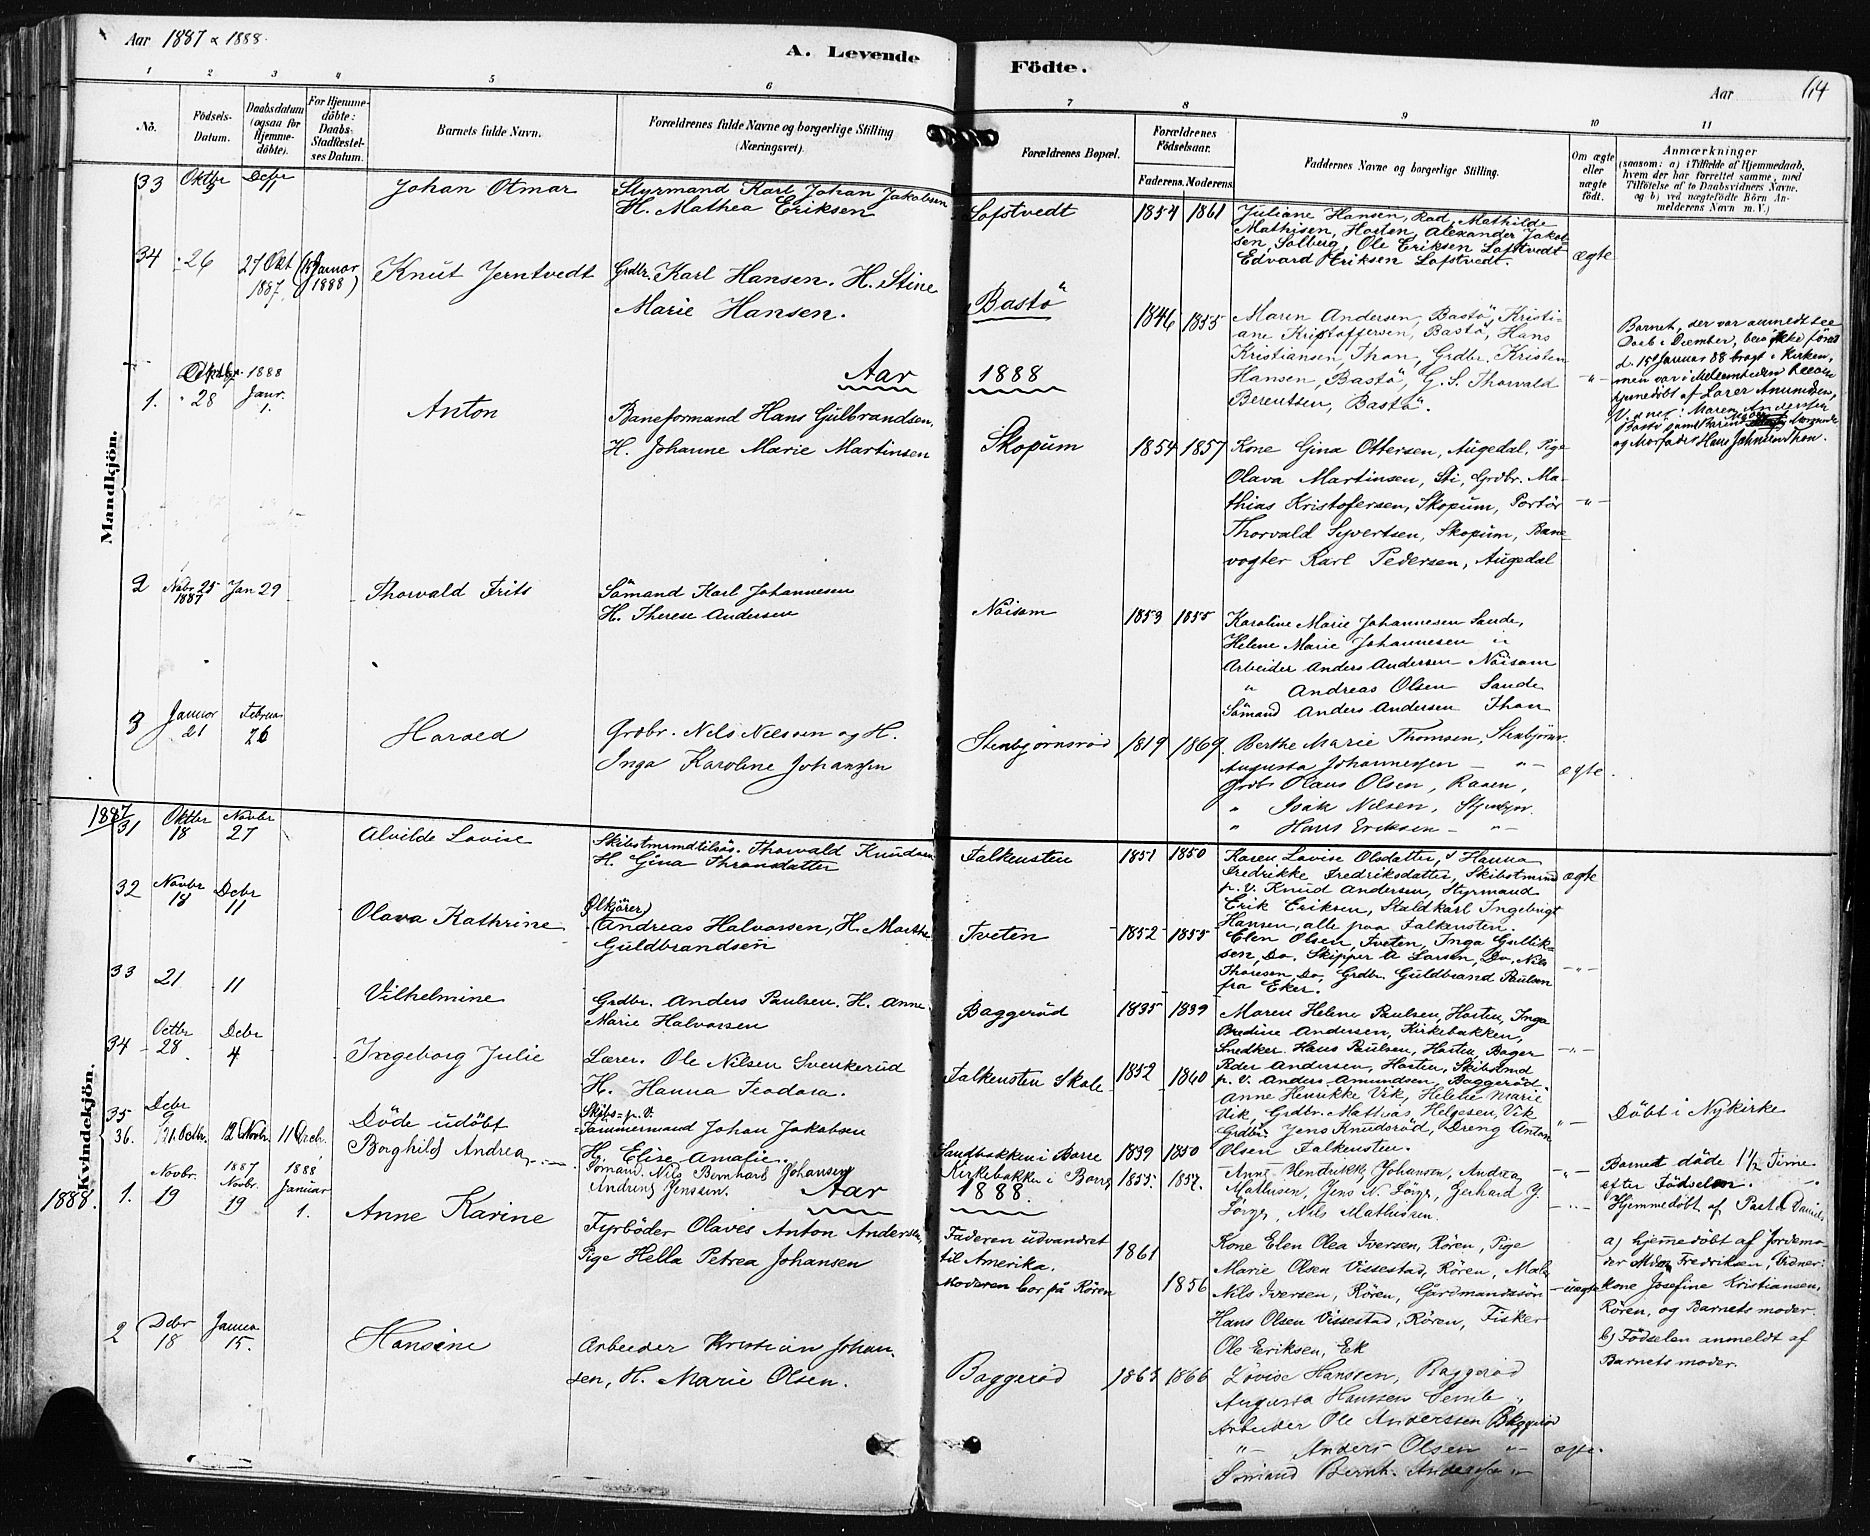 Aar 1887 & 1888.
A. Levende Födte.
Aar 114
1 2 3 4 5 6 7 8 9 10 11
No.
Födsels-Datum.
Daabsdatum (ogsaa for Hjemme-döbte).
For Hjemme-döbte: Daabs-Stadfæstel-ses Datum.
Barnets fulde Navn.
Forældrenes fulde Navne og borgerlige Stilling (Næringsvei).
Forældrenes Bopæl.
Forældrenes Födselsaar.
Faderens. Moderens.
Faddernes Navne og borgerlige Stilling.
Om ægte eller uægte födt.
Anmærkninger
(saasom: a) i Tilfælde af Hjemmedaab,
hvem der har forrettet samme, med
Tilföielse af to Daabsvidners Navne.
og b) ved uægtefödte Börn An-
melderens Navn m. V.)
Mandkjön.
33 Oktbr Debr Johan Otmar
Styrmand Karl Johan Jakobsen
H. Mathea Eriksen
Lofstvedt 1854 1861
Juliane Hansen, Rød, Mathilde
Mathisen, Horten, Alexander Jakob
sen, Solberg, Ole Eriksen Lofstvedt
Edvard Eriksen Lofstvedt. ægte
34 " 26 27 Okt 1887 (15 Januar 1888) Knut Jerntvedt
Grdbr. Karl Hansen. H. Stine
Marie Hansen.
Bastö 1846 1855
Maren Andersen, Bastö, Kristi-
ane Kristoffersen, Bastö, Hans
Kristiansen, Thon, Grdbr. Kristen
Hansen, Bastö, G. S. Thorvald
Berentsen, Bastö. "
Barnet, der var anmeldt til
Daab i December, blev ikke förend
d. 15 Januar 88 bragt i Kirken,
hjemmedöbt af Lærer Amundsen,
og Morfader Hans Johansen Thon.
Aar 1888
1. " 28 1888 Janr. 1. Anton
Baneformand Hans Gulbrandsen,
H. Johanne Marie Martinsen
Skopum 1854 1857
Kone Gina Ottersen, Augedal, Pige
Olava Martinsen, Sti, Grdbr. Ma-
thias Kristofersen, Skopum, Portör
Thorvald Syvertsen, Skopum, Bane
vogter Karl Pedersen, Augedal
"
2 Nobr 25 1887 Jan 29 Thorvald Frits
Sömand Karl Johannesen
H. Therese Andersen
Nöisom 1859 1855
Karoline Marie Johannesen Sande,
Helene Marie Johannesen "
Arbeider Anders Andersen Nöisom
" Andreas Olsen Sande
Sömand Anders Andersen Thon
3 Januar 21 Februar 26 Harald
Grdbr. Nels Nilssen og H.
Inga Karoline Johansen
Stenbjørnsrød 1819 1869
Berthe Marie Thomsen, Stenbjörnr.
Augusta Johannessen — " —
Grdbr Olaus Olsen, Raaen,
" Isak Nilsen, Stenbjør
" Hans Eriksen — " —
ægte.
Kvindekjön.
1887
31 Oktbr 18 Novbr 27 Alvilde Lovise
Skibstmrmdtilsös. Thorvald Knudsen
H. Gina Thronsdatter
Falkensten 1851 1850
Karen Lovise Olsdatter, Hanna
Fredrikke Fredriksdatter, Skibstmrmd
p. V. Knud Andersen, Styrmand
Erik Eriksen, Staldkarl Ingebrigt
Hansen, alle paa Falkensten.
ægte
32 Novbr 18 Debr 11 Olava Kathrine
(Ølkjörer)
Andreas Halvorsen, H. Marthe
Guldbrandsen
Tveten 1852 1855
Elen Olsen, Tveten, Inga Gullik-
sen, Do. Skipper A Larsen, Do, Nils
Thoresen, Do, Grdbr. Guldbrand Paulsen
fra Eker.
33 21 11 Vilhelmine
Grdbr. Anders Paulsen, H. Anne
Marie Halvorsen
Baggeröd 1835 1839
Maren Helene Paulsen, Horten, Inga
Bredine Andersen, Kirkebakken,
Snedker Hans Paulsen, Horten, Bager
Peder Andersen, Horten, Skibstmd
p. V. Anders Amundsen, Baggeröd.
34 Octbr 28 Debr 4 Ingeborg Julie
Lærer. Ole Nilsen Svenkerud
H. Hanna Teodora.
Falkensten Skole 1852 1860
Anne Henrikke Vik, Helene Marie
Vik, Grdbr. Mathias Helgesen, Vik
Grdbr. Jens Knudsröd, Dreng Anton
Olsen Falkensten.
Döbt i Nykirke
35 Debr 9 Döde udöbt
Skibs-p.V.
Tömmermand Johan Jakobsen
H. Elise Amalie.
Sandbakken i Borre 1839 1850
Barnet döde 1½ Time
efter Födselen.
36. 21 Octbr. 12 Novbr. 11 Decbr. Borghild Andrea
Sömand Nils Bernhard Johansen
Andrine Jensen.
Kirkebakken i Borre 1855. 1857.
Anne Hendrikke Johansen, Andrea
Mathisen, Jens N. Lörge, Gerhard J.
Lörge, Nils Mathisen.
Hjemmedöbt af Pastor Daniels
Aar 1888.
1888. 1. Novbr. 19 1887 Novbr. 19 1888 Januar 1. Anne Karine
Fyrböder Olaves Anton Andersen,
Pige Hella Petrea Johansen
Faderen udvandret
til Amerika.
Moderen bor på Rören
1861 1856
Kone Elen Olea Iversen, Rören, Pige
Marie Olsen Vissestad, Rören, Maler
Nils Iversen, Rören, Gårdmandssön
Hans Olsen Vissestad, Rören, Fisker
Ole Eriksen, Ek
uægte
a) hjemmedöbt af Jordemo-
der Mdm Fredriksen, Vidner:
kone Josefine Kristiansen,
Rören, og Barnets moder.
b) Födselen anmeldt af
Barnets moder.
2 Debr 18 Januar 15. Hansine
Arbeider Kristian Johan-
sen, H. Marie Olsen.
Baggeröd 1863 1866
Lovise Hanssen, Baggeröd
Augusta Hanssen Semb
Arbeider Ole Anderssen Baggeröd
" — Anders Olsen "
Sömand Bernh. Anderssen "
ægte.